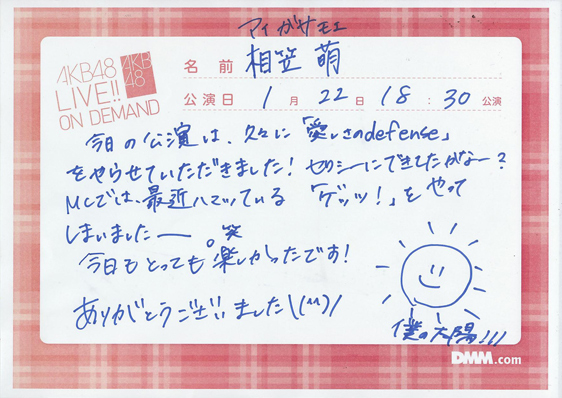 アイガサモエ
AKB48
LIVE!!
ON DEMAND
AKB
48
名前 相笠 萌
公演日 1月22日 18:30 公演
今日の公演は、久々に「愛しさのdefense」
をやらせていただきました! セクシーにできてたかなー?
MCでは、最近ハマっている「ゲッツ!」をやって
しまいましたー。笑
今日もとっても楽しかったです!
ありがとうございました\(^^)/
僕の太陽!!!
DMM.com